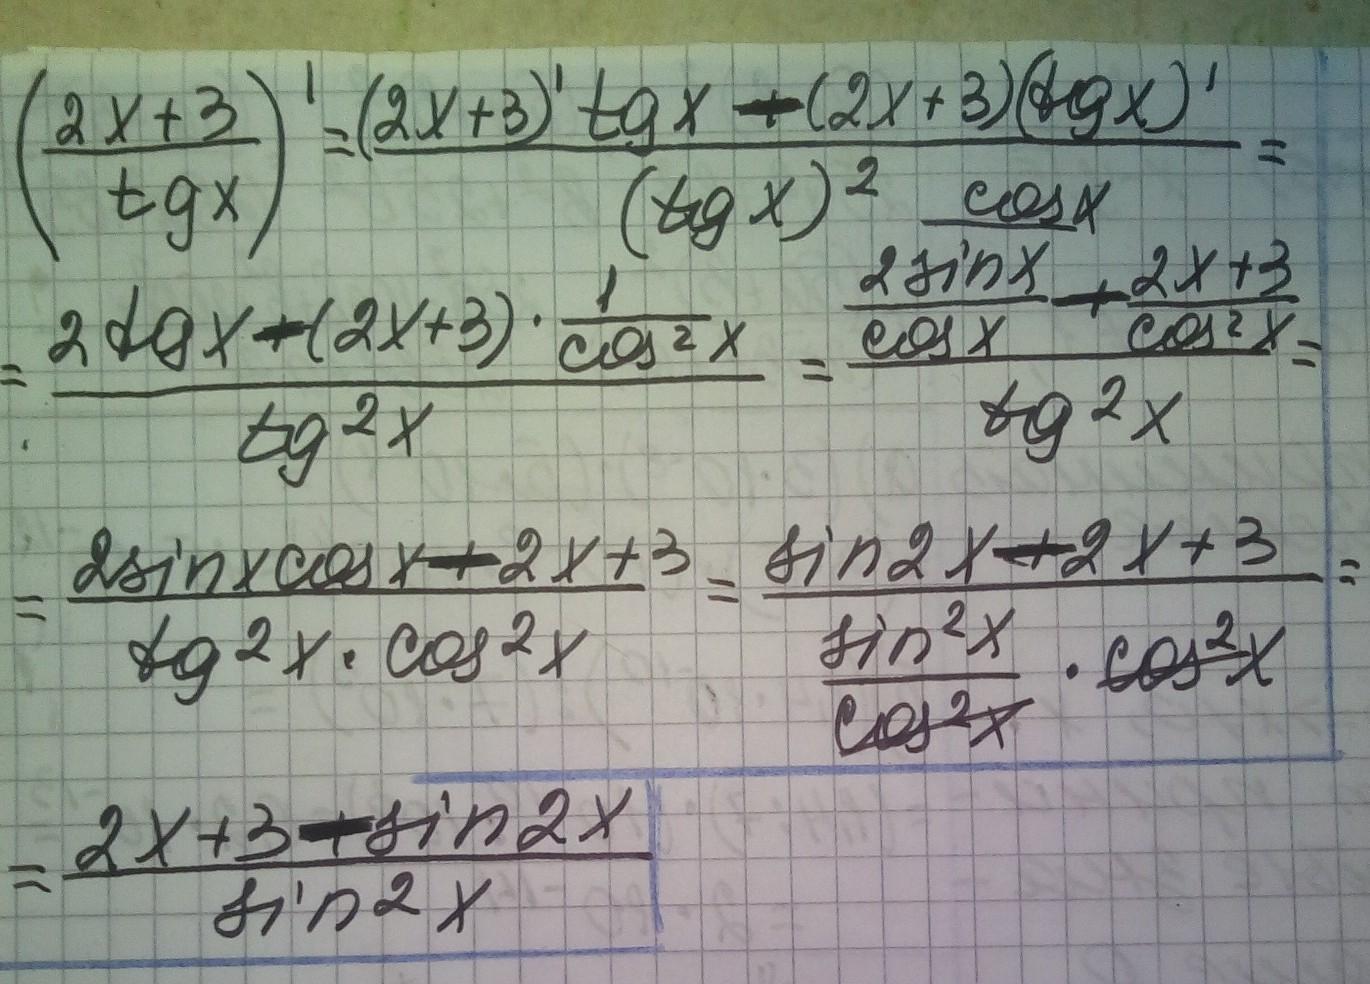 (2x+3 / tgx)' = (2x+3)' tgx - (2x+3)(tgx)' / (tgx)² =
= 2tgx - (2x+3) · 1/cos²x / tg²x = cosx / 2sinx/cosx - 2x+3/cos²x / tg²x =
= 2sinxcosx - 2x+3 / tg²x · cos²x = sin2x - 2x+3 / sin²x/cos²x · cos²x =
= 2x+3 - sin2x / sin2x